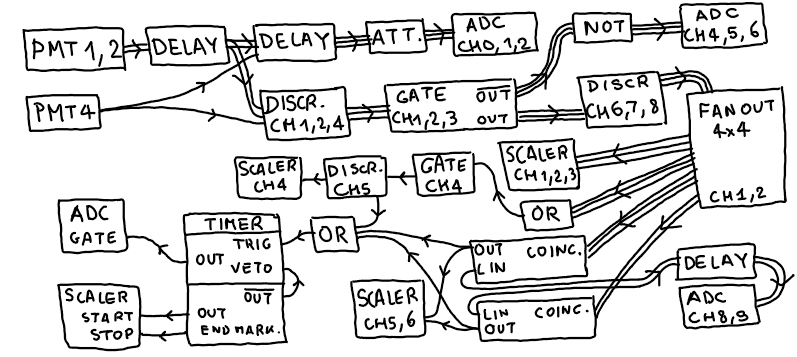 PMT 1, 2
DELAY
DELAY
ATT.
ADC
CH0, 1, 2
NOT
ADC
CH4, 5, 6
PMT4
DISCR.
CH1, 2, 4
GATE OUT
CH1, 2, 3 OUT
DISCR
CH6, 7, 8
FAN OUT
4x4
CH1, 2
SCALER
CH4
DISCR.
CH5
GATE
CH4
SCALER
CH1, 2, 3
OR
ADC
GATE
TIMER
TRIG
OUT
VETO
OUT
OUT
END MARK.
OR
OUT COINC.
LIN
DELAY
SCALER
START
STOP
SCALER
CH5, 6
LIN COINC.
OUT
ADC
CH8, 9